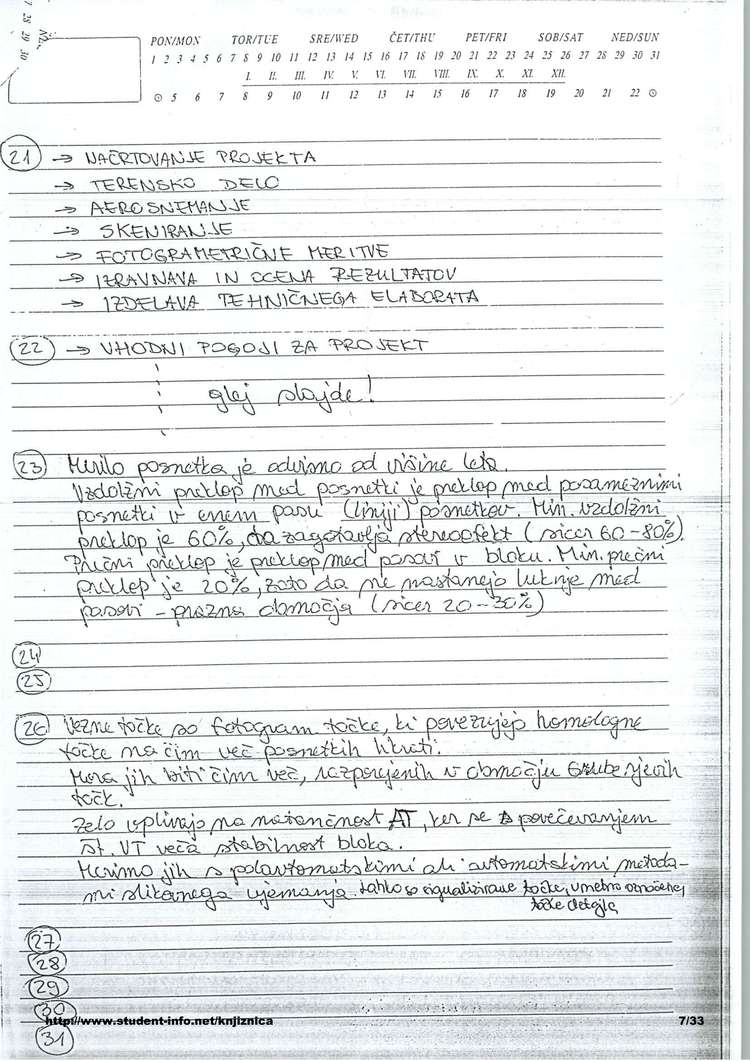 28 29 30
PON/MON TOR/TUE SRE/WED ČET/THU PET/FRI SOB/SAT NED/SUN
1 2 3 4 5 6 7 8 9 10 11 12 13 14 15 16 17 18 19 20 21 22 23 24 25 26 27 28 29 30 31
I. II. III. IV. V. VI. VII. VIII. IX. X. XI. XII.
5 6 7 8 9 10 11 12 13 14 15 16 17 18 19 20 21 22
21 → NAČRTOVANJE PROJEKTA
→ TERENSKO DELO
→ AEROSNEMANJE
→ SKENIRANJE
→ FOTOGRAMETRIČNE MERITVE
→ IZRAVNAVA IN OCENA REZULTATOV
→ IZDELAVA TEHNIČNEGA ELABORATA
22 → VHODNI POGOJI ZA PROJEKT
glej slajde!
23 Merilo posnetka je odvisno od višine leta.
Vzdolžni preklop med posnetki je preklop med posameznimi
posnetki v enem pasu (liniji) posnetkov. Min. vzdolžni
preklop je 60%, da zagotavlja stereoefekt (sicer 60-80%).
Prečni preklop je preklop med pasovi v bloku. Min. prečni
preklop je 20%, zato da ne nastanejo luknje med
pasovi - prazna območja (sicer 20-30%)
24
25
26 Vezne točke so fotogram. točke, ki povezujejo homologne
točke na čim več posnetkih hkrati.
Mora jih biti čim več, razporejenih v območju Gruberjevih
točk.
Zelo vplivajo na natančnost AT, ker se s povečevanjem
št. VT veča stabilnost bloka.
Merimo jih s polavtomatskimi ali avtomatskimi metoda-
mi slikovnega ujemanja. Lahko so signalizirane točke, umetno označene,
točke detajla
27
28
29
30
http://www.student-info.net/knjiznica 7/33
31